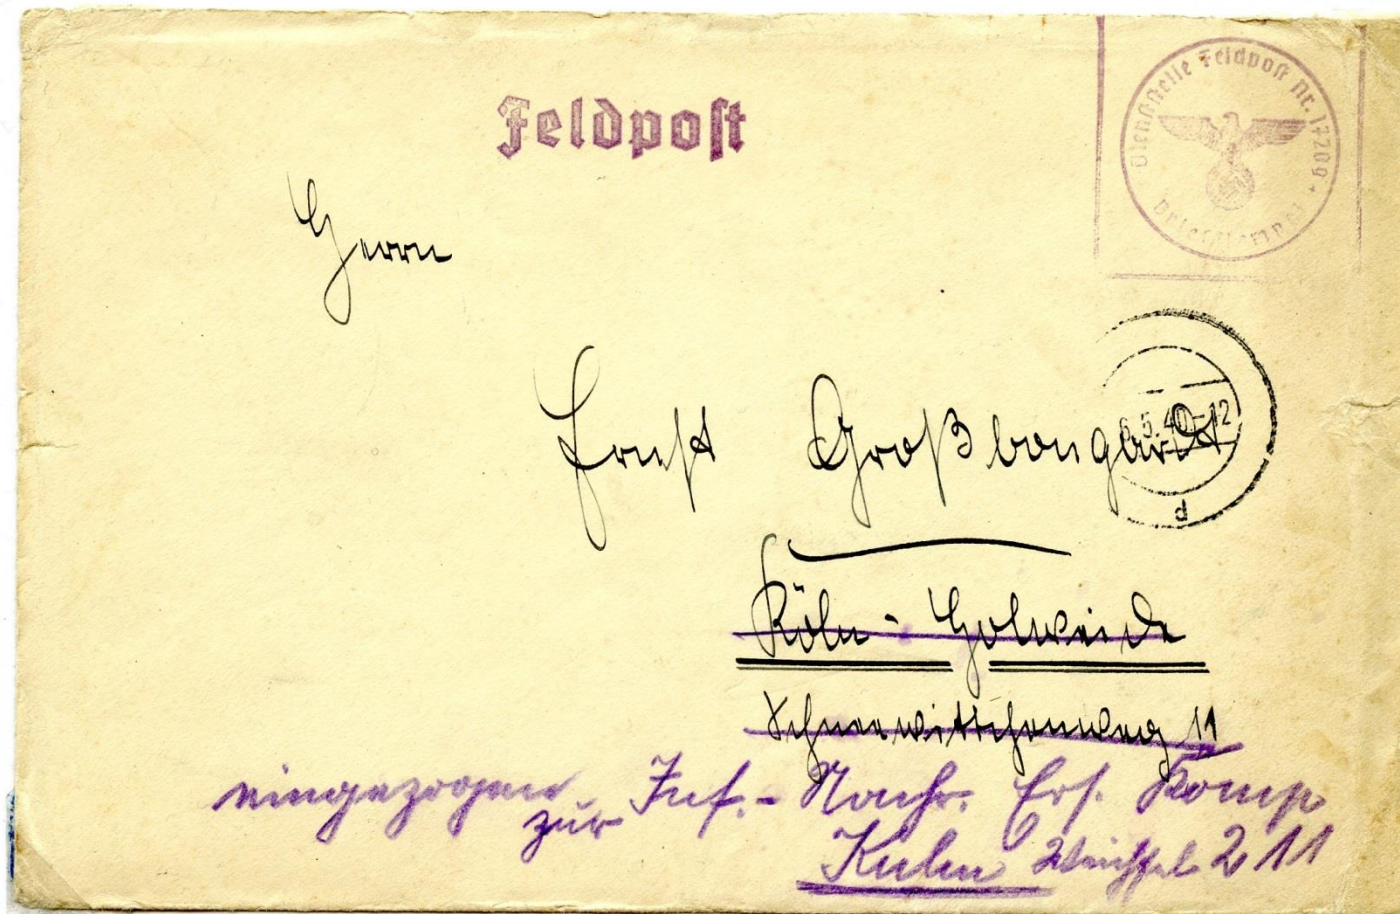 Feldpost
Dienststelle Feldpost Nr. 17209 *
Briefstempel
Herrn
Ernst Großbongardt
6.5.40-12
d
Köln - Holweide
Schneewittchenweg 11
eingezogen zur Inf.- Nachr. Ers. Komp
Kulm Weichsel 211